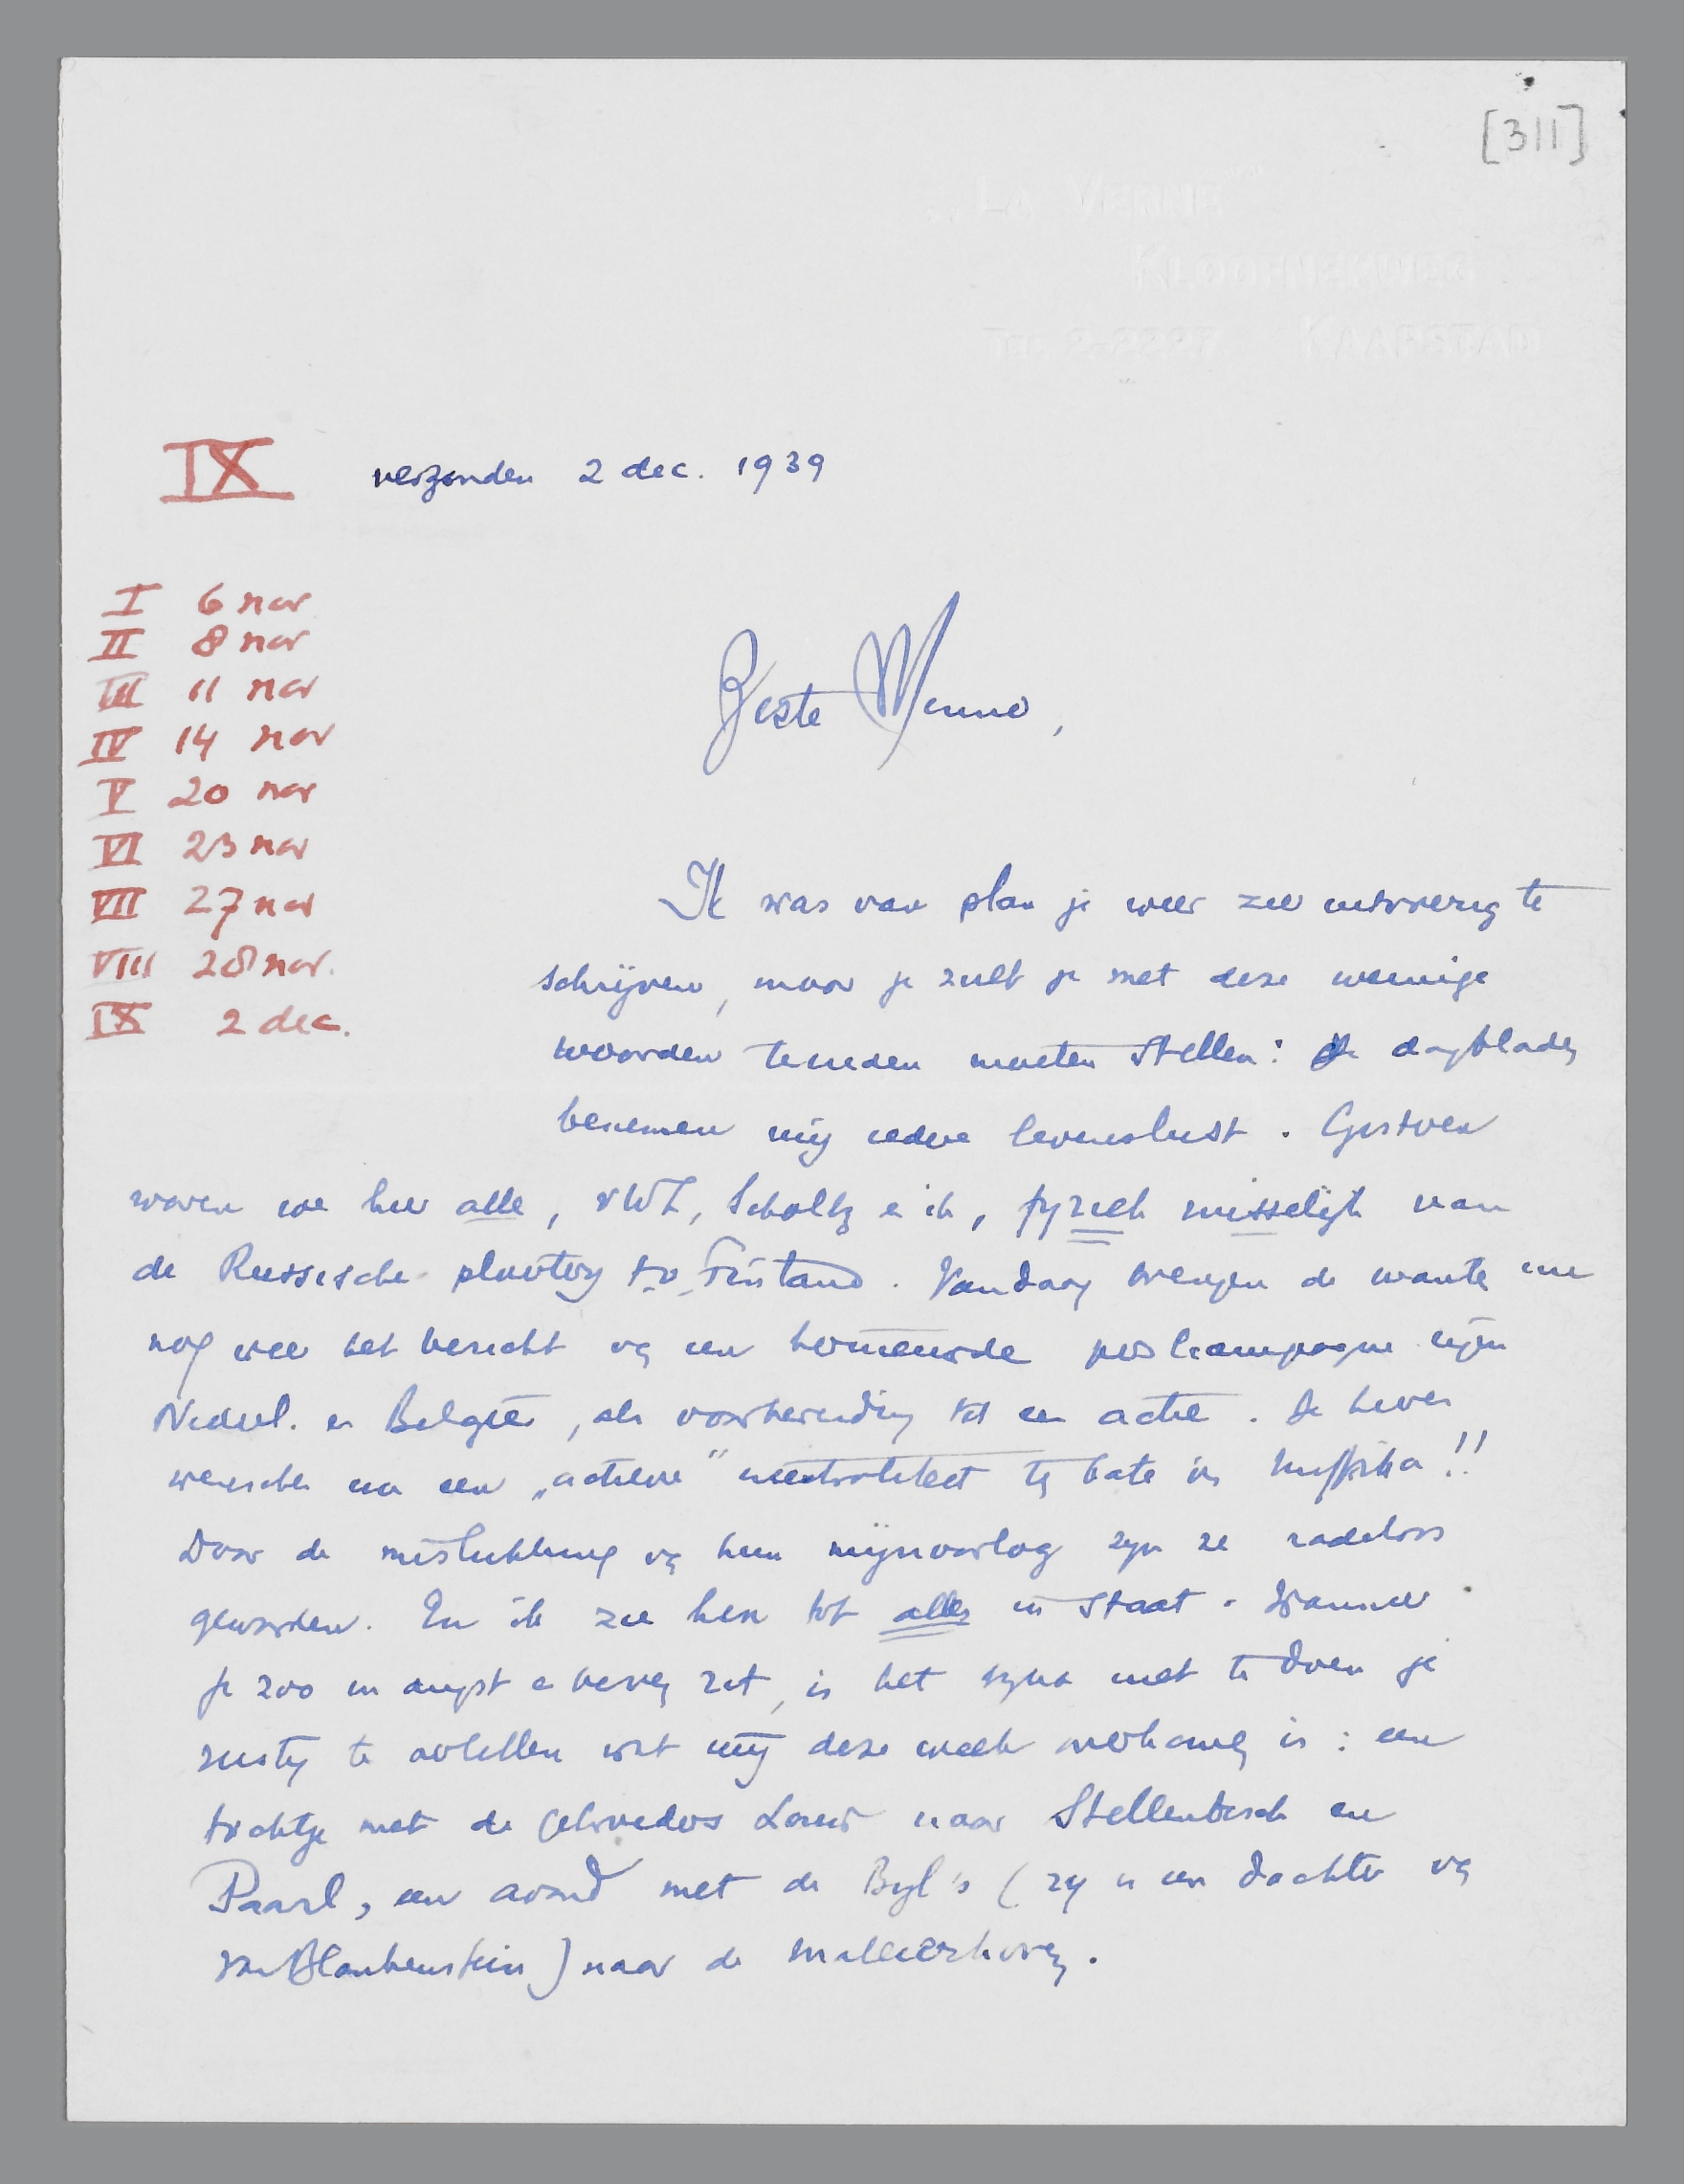 [311]
„La Venne”
Kloofnekweg
Tel 2-2227. Kaapstad
IX verzonden 2 dec. 1939
I 6 nov
II 8 nov
III 11 nov
IV 14 nov
V 20 nov
VI 23 nov
VII 27 nov
VIII 28 nov.
IX 2 dec.
Beste Menno,
Ik was van plan je weer zeer uitvoerig te
schrijven, maar je zult je met deze weinige
woorden tevreden moeten stellen: De dagbladen
benemen mij iedere levenslust. Gisteren
waren we hier alle, vWL, Scholtz en ik, fyziek misselijk van
de Russische ploertery t.o. Finland. Vandaag brengen de kranten me
nog weer het bericht van een hernieuwde perscampagne tegen
Nederl. en België, als voorbereiding tot een actie. De heren
wenschen nu een „actieve” neutraliteit ten bate van
Door de mislukking van hun mijnoorlog zijn ze radeloos
geworden. En ik zie hen tot alles in staat. Wanneer
je zoo in angst en beven zit, is het bijna niet te doen je
rustig te vertellen wat mij deze week overkomen is: een
tochtje met de gebroeders Louw naar Stellenbosch en
Paarl, een avond met de Byl's (zy is een dochter van
Van Blankenstein) naar de